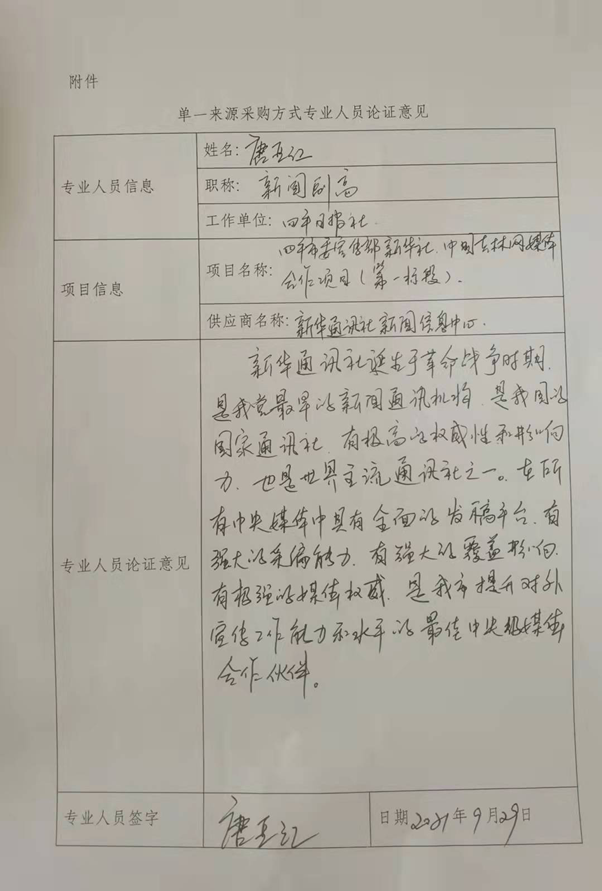 附件
单一来源采购方式专业人员论证意见
专业人员信息
姓名: 唐亚红
职称: 新闻副高
工作单位: 四平日报社
项目信息
项目名称: 四平市委宣传部新华社、中国吉林网媒体
合作项目(第一标段).
供应商名称: 新华通讯社新闻信息中心.
专业人员论证意见
新华通讯社诞生于革命战争时期,
是我党最早的新闻通讯机构, 是我国的
国家通讯社, 有极高的权威性和影响
力, 也是世界主流通讯社之一。在所
有中央媒体中具有全面的发稿平台、有
强大的采编能力, 有强大的覆盖影响,
有极强的媒体权威, 是我市提升对外
宣传工作能力和水平的最佳中央级媒体
合作伙伴。
专业人员签字
唐亚红
日期 2021年9月29日